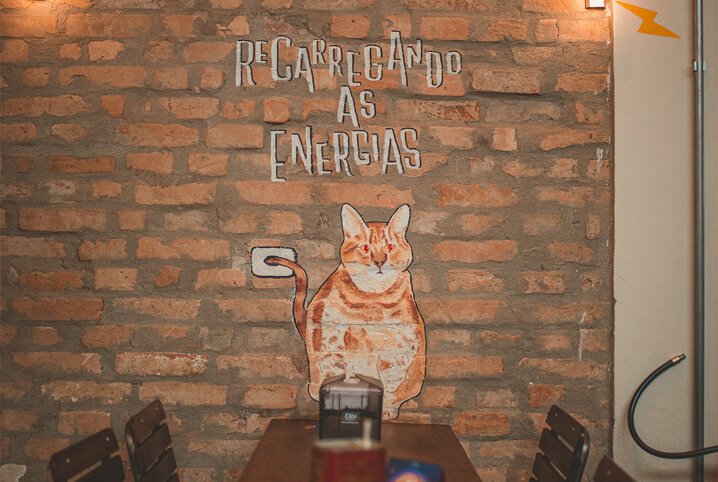 ReCARREGANDO
AS
ENERGIAS
Elite